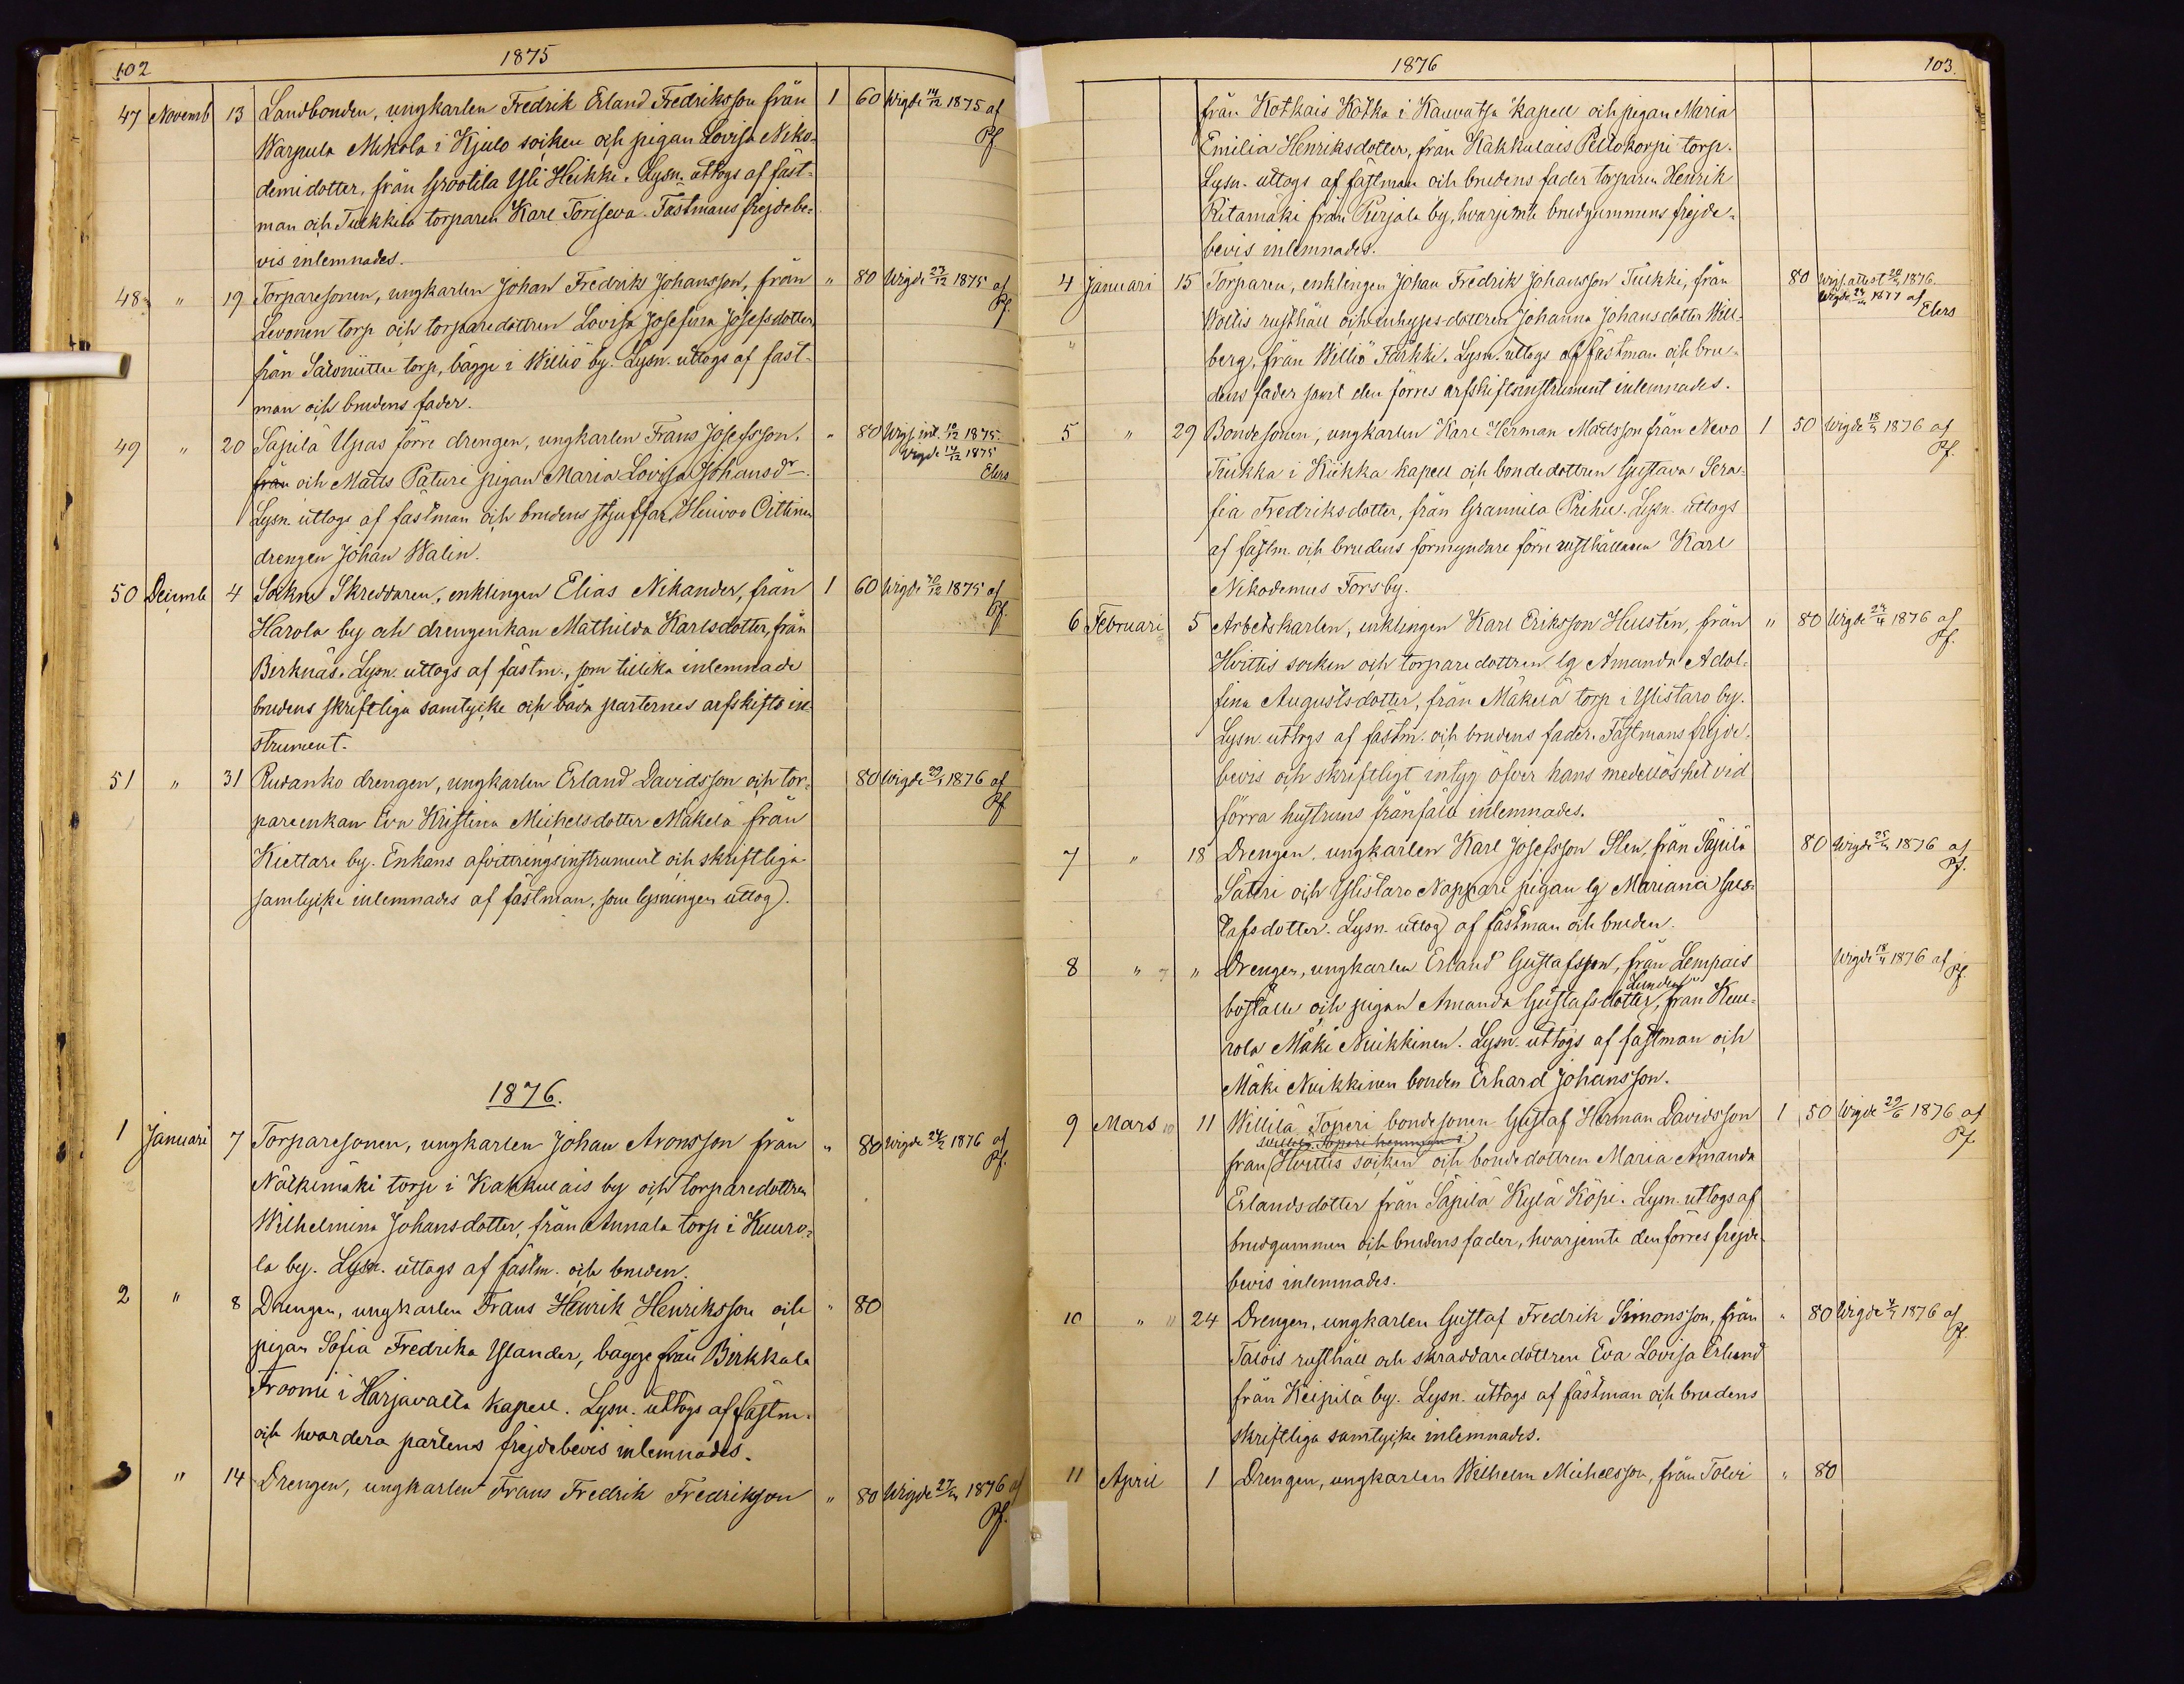 102
1875
47 Novemb 13 Landbonden, ungkarlen Fredrik Erland Fredriksson från 1 60 Wigde 14/12 1875 af
Warpula Mikola i Kjulo socken och pigan Lovisa Niko= Pf.
demidotter, från Grootila Yli Heikki. Lysn. uttogs af fäst=
man och Tuckkila torparen Karl Toriseva. Fästmans frejdebe=
vis inlemnades.
48 " 19 Torparesonen, ungkarlen Johan Fredrik Johansson, från " 80 Wigde 27/12 1875 af
Levonen torp och torparedottren Lovisa Josefina Josefsdotter Pf.
från Saloniittu torp, bägge i Williö by. Lysn. uttogs af fäst=
man och brudens fader.
49 " 20 Säpilä Upas förre drengen, ungkarlen Frans Josefsson, " 80 Wigs. int. 10/12 1875.
Wigde 12/12 1875
från och Matts Paturi pigan Maria Lovisa Johansdr. Elers
Lysn. uttogs af fästman och brudens stjuffar, Heinoo Oittinen
drengen Johan Walin.
50 Decemb 4 Sockne Skreddaren, enklingen Elias Nikander, från 1 60 Wigde 30/12 1875 af
Harola by och drengenkan Mathilda Karlsdotter, från Pf.
Birknäs. Lysn. uttogs af fästm., som tillika inlemnade
brudens skriftliga samtycke och båda parternes arfskifts in=
strument.
51 " 31 Rudanko drengen, ungkarlen Erland Davidsson och tor= 80 Wigde 29/1 1876 af
pareenkan Eva Kristina Michelsdotter Mäkelä från Pf
Kiettare by. Enkans afvittringsinstrument och skriftliga
samtycke inlemnades af fästman, som lysningen uttog.
1876.
1 Januari 7 Torparesonen, ungkarlen Johan Aronsson från " 80 Wigde 24/2 1876 af
Nälkimäki torp i Kakkulais by och torparedottren Pf.
Wilhelmina Johansdotter, från Annala torp i Kuuro=
la by. Lysn. uttogs af fästm. och bruden.
2 " 8 Drengen, ungkarlen Frans Henrik Henriksson och " 80
pigan Sofia Fredrika Ylander, bägge från Birkkala
Froomi i Harjavalta kapell. Lysn. uttogs af fästm.
och hvardera partens frejdebevis inlemnades.
3 " 14 Drengen, ungkarlen Frans Fredrik Fredriksson " 80 Wigde 27/2 1876 af
Pf.
1876
103.
från Kotkais Kotka i Kauvatsa kapell och pigan Maria
Emilia Henriksdotter, från Kakkulais Peltokorpi torp.
Lysn. uttogs af fästman och brudens fader torparen Henrik
Ritamäki från Purjala by, hvarjemte brudgummens frejde=
bevis inlemnades.
4 Januari 15 Torparen, enklingen Johan Fredrik Johansson Tuckki, från 80 Wigs. attest 1876.
Wigde 1877 af
Woitis rusthåll och inhyses-dottren Johanna Johansdotter Will= Elers
berg, från Williö Färkki. Lysn. uttogs af fästman och bru=
dens fader samt den förres arfskiftsinstrument inlemnades.
5 " 29 Bondesonen, ungkarlen Karl Herman Mattsson från Nevo 1 50 Wigde 18/3 1876 af
Tuckka i Kiikka kapell och bondedottren Gustava Sera= Pf.
fia Fredriksdotter, från Grannila Prihti. Lysn. uttogs
af fästm. och brudens förmyndare förre rusthållaren Karl
Nikodemus Forsby.
6 Februari 5 Arbetskarlen, enklingen Karl Eriksson Heustén, från " 80 Wigde 24/4 1876 af
Hvittis socken och torparedottren lg Amanda Adol= Pf.
fina Augustsdotter, från Mäkelä torp i Ylistaro by.
Lysn. uttogs af fästm. och brudens fader. Fästmans frejde=
bevis och skriftligt intyg öfver hans medellöshet vid
förra hustruns frånfälle inlemnades.
7 " 18 Drengen, ungkarlen Karl Josefsson Sten, från Säpilä 80 Wigde 1876 af
Säteri och Ylistaro Nappari pigan lg Mariana Gus= Pf.
tafsdotter. Lysn. uttog af fästman och bruden.
8 " " Drengen, ungkarlen Erland Gustafsson, från Lempais Wigde 18/4 1876 af
Lunden
boställe och pigan Amanda Gustafsdotter, från Kuu= Pf.
rola Mäki Nuikkinen. Lysn. uttogs af fästman och
Mäki Nuikkinen bonden Erhard Johansson.
9 Mars 11 Willilä Toperi bondesonen Gustaf Herman Davidsson 1 50 Wigde 29/6 1876 af
Willilä Toperi hemman i
från Hvittis socken och bondedottren Maria Amanda Pf.
Erlandsdotter från Säpilä Kylä Köpi. Lysn. uttogs af
brudgummen och brudens fader, hvarjemte den förres frejde=
bevis inlemnades.
10 " 24 Drengen, ungkarlen Gustaf Fredrik Simonsson, från " 80 Wigde 1876 af
Talois rusthåll och skräddaredottren Eva Lovisa Erlund Pf
från Keipilä by. Lysn. uttogs af fästman och brudens
skriftliga samtycke inlemnades.
11 April 1 Drengen, ungkarlen Wilhelm Michelsson, från Tolvi " 80